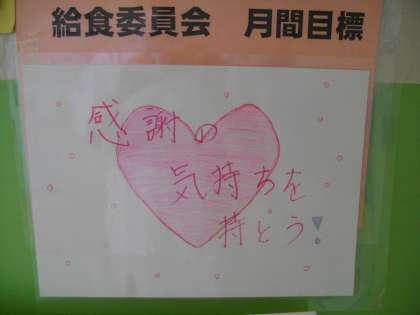 給食委員会　月間目標
感謝の
気持ちを
持とう!